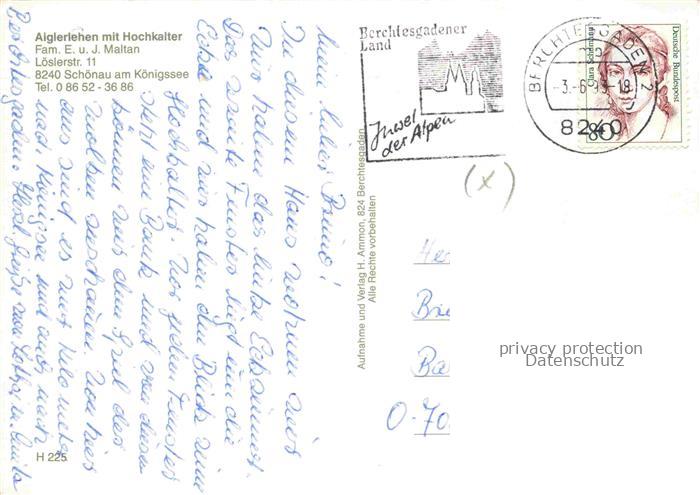 Aiglerlehen mit Hochkalter
Fam. E. u. J. Maltan
Löslerstr. 11
8240 Schönau am Königssee
Tel. 0 86 52 - 36 86
Mein lieber Bruno!
In diesem Haus wohnen wir
Wir haben das linke Eckzimmer
Das zweite Fenster liegt um die
Ecke und wir haben den Blick zum
Hochkalter. Vor jedem Fenster
steht eine Bank und von dieser
können wir dem Spiel der
Wolken zuschauen. Von hier
aus sind es nur Kilometer
zum Königssee und auch nach
Berchtesgaden. Herzl. Grüße von
H 225
Aufnahme und Verlag H. Ammon, 824 Berchtesgaden
Alle Rechte vorbehalten
Berchtesgadener
Land
Juwel
der Alpen
BERCHTESGADEN 2
-3.-6.93-18
8240
Clara Schumann
Deutsche Bundespost
80
(x)
He
Bri
Ba
O-70
privacy protection
Datenschutz